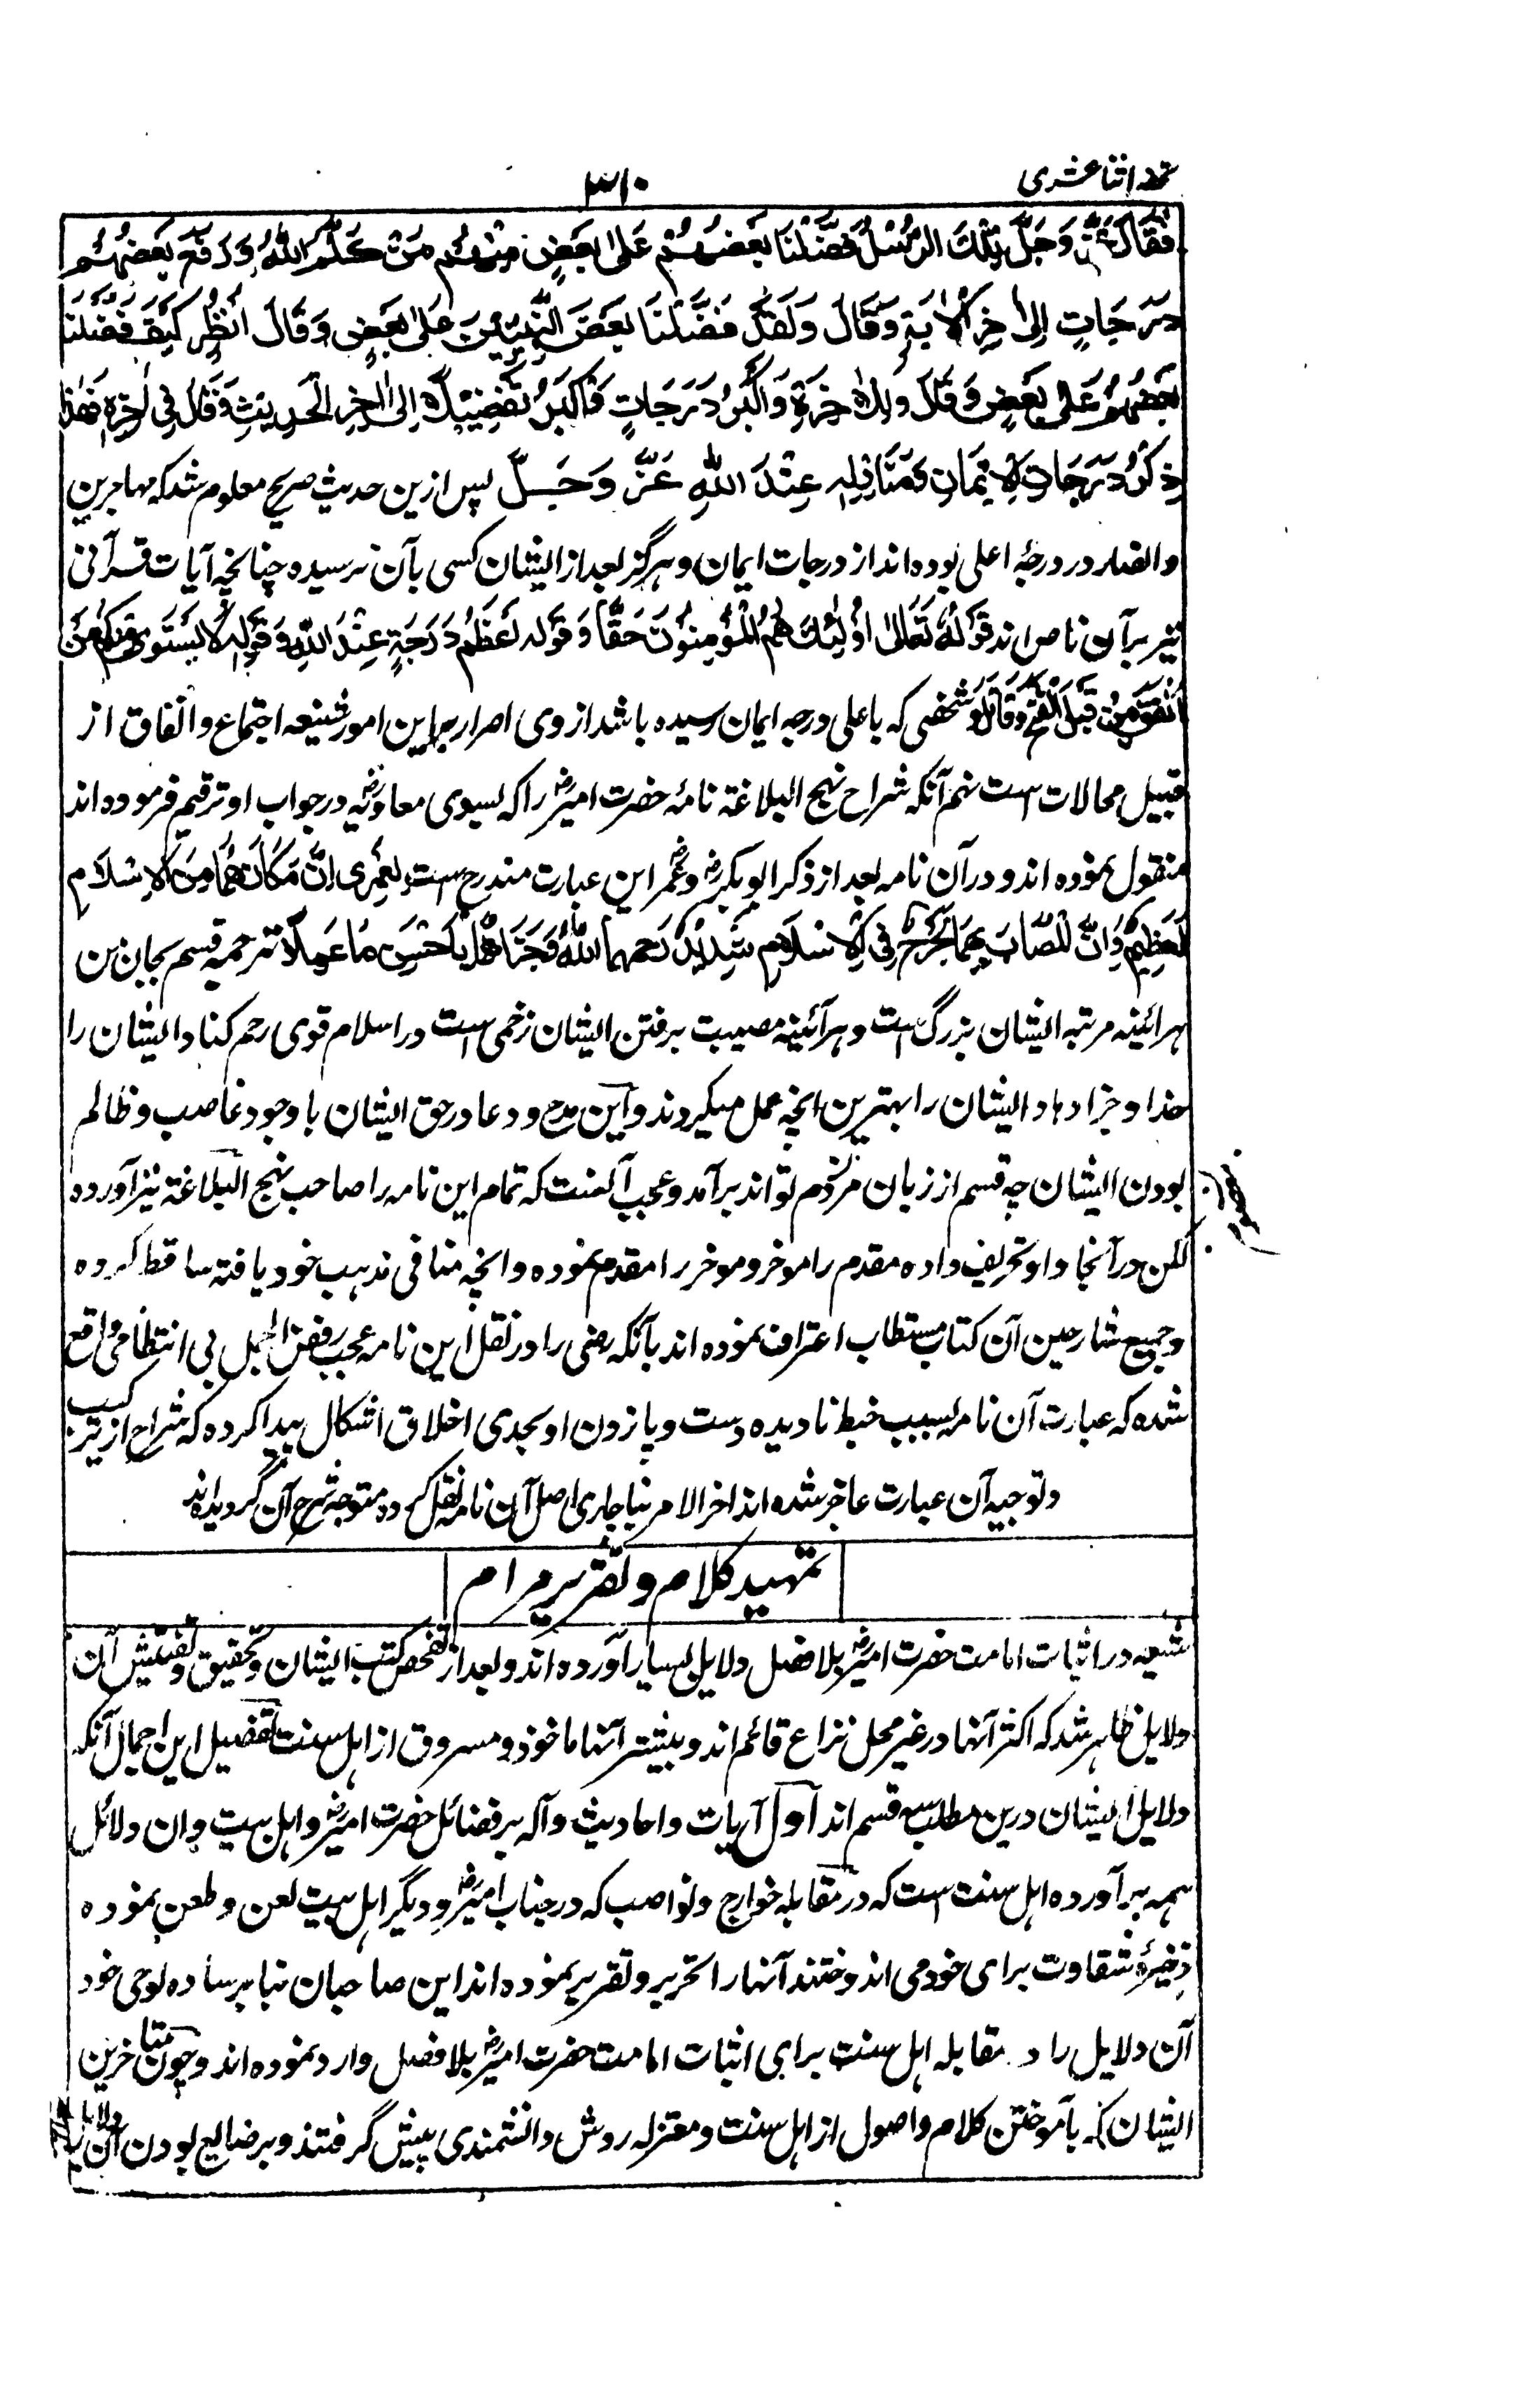 تحفه اثنا عشری
۳۱۰
فَقَالَ عَزَّ وَجَلَّ تِلْكَ الرُّسُلُ فَضَّلْنَا بَعْضَهُمْ عَلىٰ بَعْضٍ مِنْهُمْ مَنْ كَلَّمَ اللّٰهُ وَرَفَعَ بَعْضَهُمْ
دَرَجَاتٍ اِلىٰ اٰخِرِ الْاٰيَةِ وَقَالَ وَلَقَدْ فَضَّلْنَا بَعْضَ النَّبِيِّيْنَ عَلىٰ بَعْضٍ وَقَالَ اُنْظُرْ كَيْفَ فَضَّلْنَا
بَعْضَهُمْ عَلىٰ بَعْضٍ وَقَالَ وَلَلْاٰخِرَةُ وَاَكْبَرُ دَرَجَاتٍ وَاَكْبَرُ تَفْضِيْلًا اِلىٰ اٰخِرِ الْحَدِيْثِ وَقَالَ فِي اٰخِرِهِ فَهٰذَا
ذِكْرُ دَرَجَاتِ الْاِيْمَانِ وَمَنَازِلِهِ عِنْدَ اللّٰهِ عَزَّ وَجَلَّ پس ازین حدیث صریح معلوم شد که مهاجرین
وانصار در درجهٔ اعلی بوده اند از درجات ایمان و هرگز بعد از ایشان کسی بآن نرسیده چنانچه آیات قرآنی
نیز برآن ناص اند قَوْلُهُ تَعَالىٰ اُولٰئِكَ هُمُ الْمُؤْمِنُوْنَ حَقًّا وَقَوْلُه اَعْظَمُ دَرَجَةً عِنْدَ اللّٰهِ وَقَوْلُه لَا يَسْتَوِي مِنْكُمْ مَنْ
اَنْفَقَ مِنْ قَبْلِ الْفَتْحِ وَقَاتَلَ و شخصی که باعلی درجه ایمان رسیده باشد از وی اصرار براین امور شنیعه اجتماع و اتفاق از
قبیل محالات است نهم آنکه شراح نهج البلاغة نامهٔ حضرت امیرؓ را که بسوی معاویهؓ در جواب او ترقیم فرموده اند
منقول نموده اند و درآن نامه بعد از ذکر ابوبکرؓ و عمرؓ این عبارت مندرج است لَعَمْرِي اِنَّ مَكَانَهُمَا مِنَ الْاِسْلَامِ
لَعَظِيْمٌ وَاِنَّ الْمُصَابَ بِهِمَا لَجُرْحٌ فِي الْاِسْلَامِ شَدِيْدٌ رَحِمَهُمَا اللّٰهُ وَجَزَاهُمَا بِاَحْسَنِ مَا عَمِلَا ترجمه قسم بجان من
هرآئینه مرتبه ایشان بزرگ است و هرآئینه مصیبت برفتن ایشان زخمی است در اسلام قوی رحم کناد ایشان را
خدا و جزا دهاد ایشان را بهترین انچه عمل میکردند و این مدح و دعا در حق ایشان با وجود غاصب و ظالم
بودن ایشان چه قسم از زبان مردم تواند برآمد و عجب آنست که تمام این نامه را صاحب نهج البلاغة نیز آورده
لکن در آنجا داد تحریف داده مقدم را موخر و موخر را مقدم نموده و انچه منافی مذهب خود یافته ساقط کرده
و جمیع شارحین آن کتاب مستطاب اعتراف نموده اند بآنکه رضی را در نقل این نامه عجب رقص الجمل بی انتظامی واقع
شده که عبارت آن نامه بسبب خبط نادیده دست و پا زدن او بحدی اغلاق اشکال پیدا کرده که شراح از ترکیب
و توجیه آن عبارت عاجز شده اند اخر الامر بناچاری اصل آن نامه نقل کرده متوجه شرح آن گردیده اند
تمهید کلام و تقریر مرام
شیعه در اثبات امامت حضرت امیرؓ بلافصل دلایل بسیار آورده اند و بعد از تفحص کتب ایشان و تحقیق و تفتیش آن
دلایل ظاهر شد که اکثر آنها در غیر محل نزاع قائم اند و بیشتر آنها ماخوذ و مسروق از اهل سنت تفصیل این اجمال آنکه
دلایل ایشان درین مطلب سه قسم اند اول آیات و احادیث داله بر فضائل حضرت امیرؓ و اهل بیت و ان دلائل
همه برآورده اهل سنت است که در مقابله خوارج و نواصب که در جناب امیرؓ و دیگر اهل بیت لعن و طعن نموده
ذخیرهٔ شقاوت برای خود می اندوختند آنها را تحریر و تقریر نموده اند این صاحبان بنابر ساده لوحی خود
آن دلایل را در مقابله اهل سنت برای اثبات امامت حضرت امیرؓ بلافصل وارد نموده اند و چون متاخرین
ایشان که بآموختن کلام و اصول از اهل سنت و معتزله روش دانشمندی پیش گرفتند و بر ضایع بودن آن دلایل